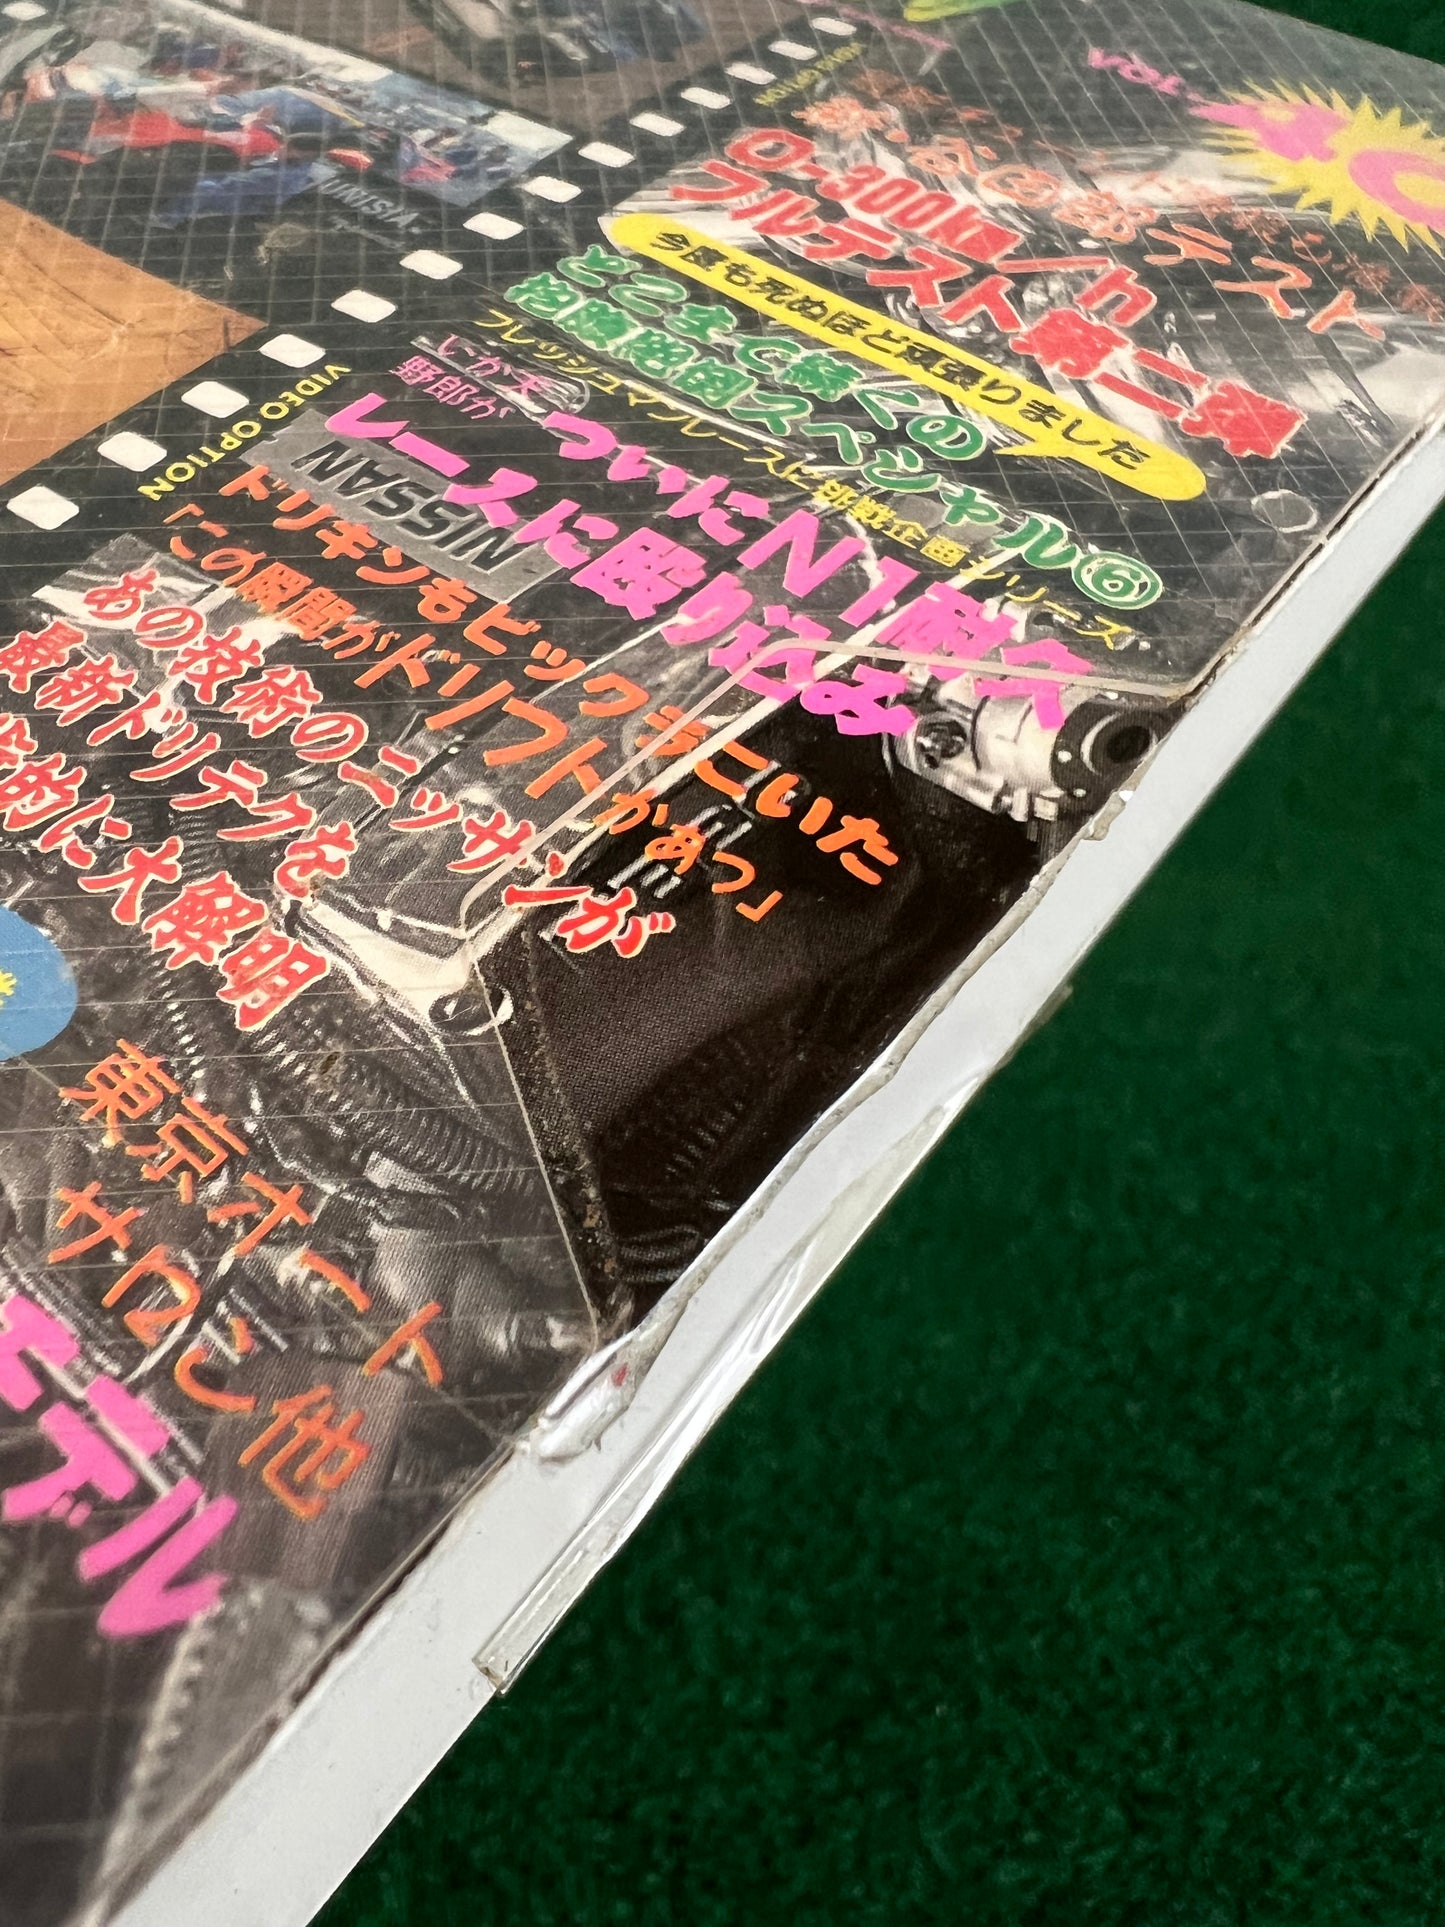 VOL.
VIDEO OPTION
0-300km/h
フルテスト第二弾
今度も死ぬほど頑張りました
どこまで続くの
フレッシュマンレースに挑戦企画シリーズ
いか天
野郎が
ついにN1耐久
レースに殴り込み
NISSAN
ドリキンもビックラこいた
「この瞬間がドリフトかぁつ」
あの技術のニッサンが
最新ドリテクを
的に大解明
VIDEO OPTION
東京オート
サロン他
デル